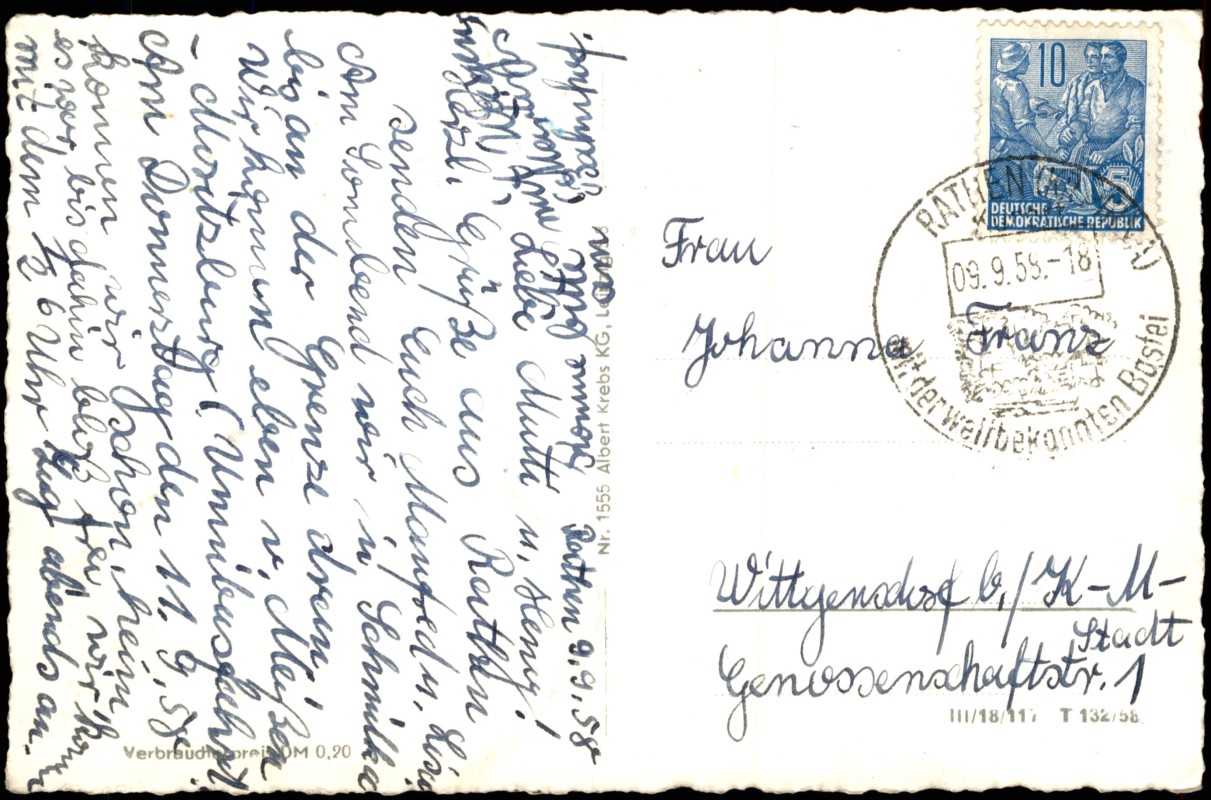 Rathen 9.9.58
Liebe Mutti u. Heinz!
Herzl. Grüße aus Rathen
senden Euch Manfred u.
Am Sonnabend wir in Schmilka
bis an der Grenze drein!
Wir kommen eben v. Meißen
- Moritzburg (Umnibusfahrt
Am Donnerstag den 11.9.58
kommen wir schon heim
es war bis dahin bloß frei wir
mit dem ½ 6 Uhr Zug abends an.
Verbraucherpreis DM 0,20
Nr. 1555 Albert Krebs KG,
10
5
DEUTSCHE
DEMOKRATISCHE REPUBLIK
RATHEN
09.9.58.-18
mit der weltbekannten Bastei
Frau
Johanna Franz
Wittgensdorf b./K-M-
Stadt
Genossenschaftstr. 1
III/18/117 T 132/58